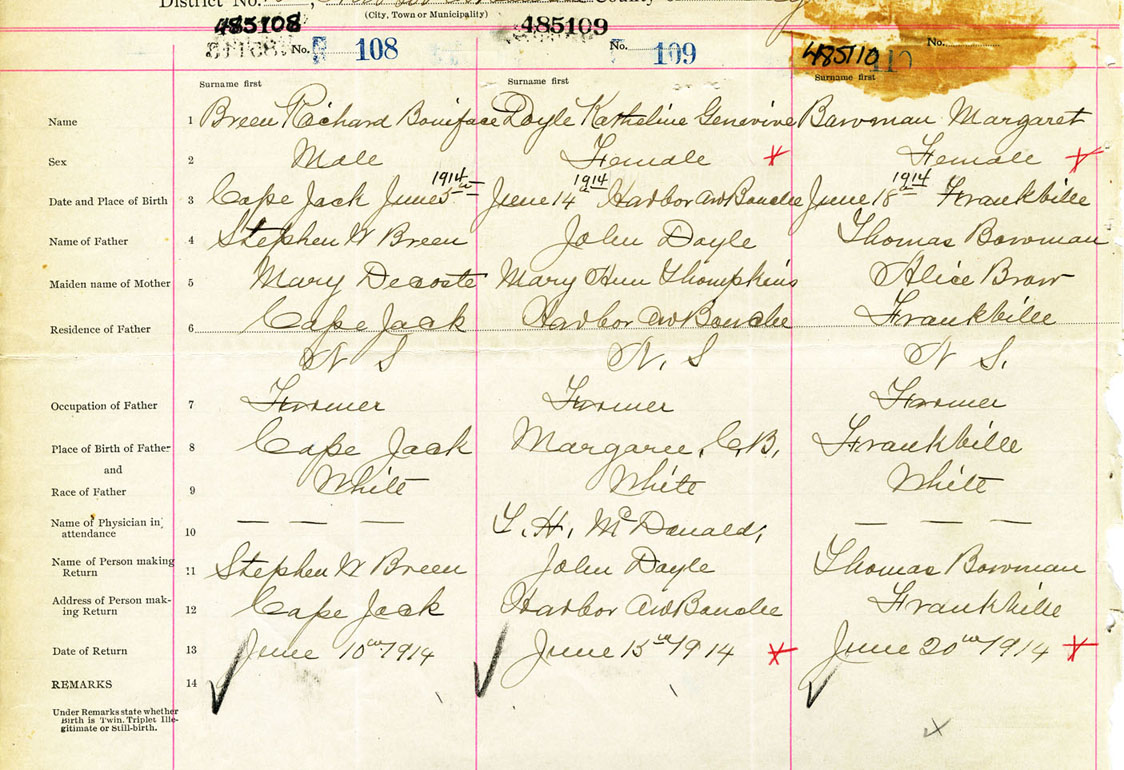 District No.
County of
(City, Town or Municipality)
485108 485109 485110
No. 108 No. 109 No. 110
Surname first Surname first Surname first
Name 1 Breen Richard Boniface Doyle Katheline Genevive Bowman Margaret
Sex 2 Male Female Female
1914 1914 1914
Date and Place of Birth 3 Cape Jack June 5th June 14th Harbor Au Bouche June 18th Frankville
Name of Father 4 Stephen W Breen John Doyle Thomas Bowman
Maiden name of Mother 5 Mary Decoste Mary Ann Thompkins Alice Brow
Residence of Father 6 Cape Jack Harbor Au Bouche Frankville
N S N. S N S.
Occupation of Father 7 Farmer Farmer Farmer
Place of Birth of Father 8 Cape Jack Margaree, C.B. Frankville
and
Race of Father 9 White White White
Name of Physician in attendance 10 — — — McDonald, — — —
Name of Person making Return 11 Stephen W Breen John Doyle Thomas Bowman
Address of Person making Return 12 Cape Jack Harbor Au Bouche Frankville
Date of Return 13 June 10th 1914 June 15th 1914 June 20th 1914
REMARKS 14
Under Remarks state whether
Birth is Twin, Triplet Ille-
gitimate or Still-birth.